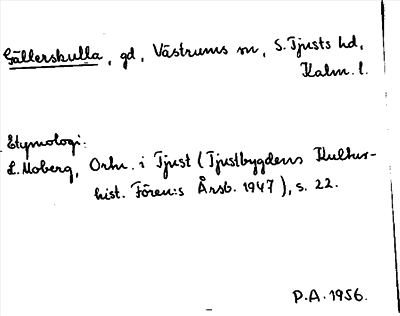 Gällerskulla, gd, Västrums sn, S. Tjusts hd,
Kalm. l.
Etymologi:
L. Moberg, Ortn. i Tjust (Tjustbygdens Kultur-
hist. Fören:s Årsb. 1947), s. 22.
P.A. 1956.